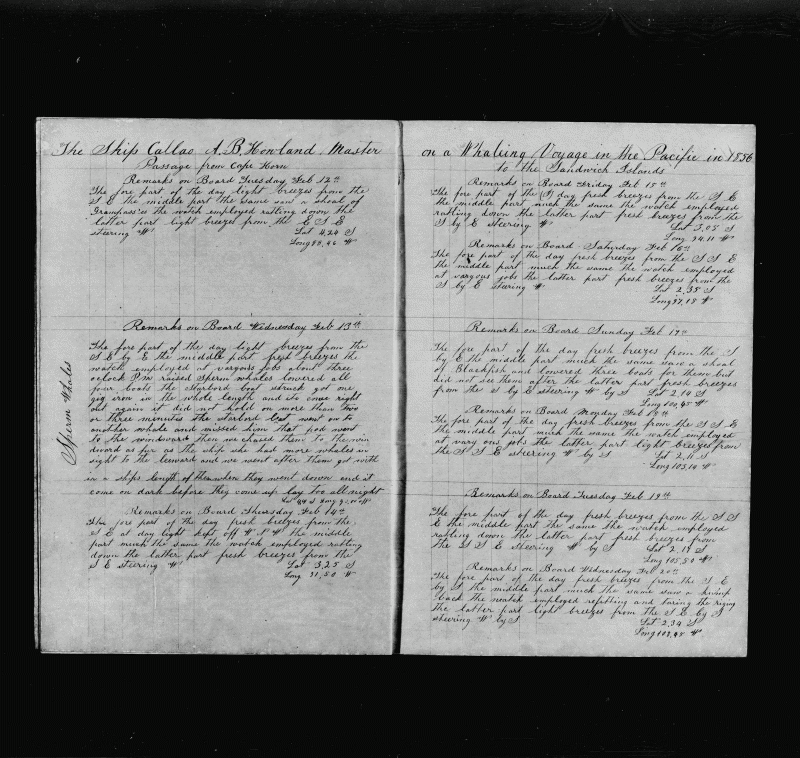 The Ship Callao A.B. Howland Master
Passage from Cape Horn
Remarks on Board Tuesday Feb 12th
The fore part of the day light breezes from the
S E the middle part the same saw a shoal of
Grampuses the watch employed ratling down the
latter part light breezes from the E S E
steering W
Lat 4,24 S
Long 88,46 W
Remarks on Board Wednesday Feb 13th
Sperm Whales
The fore part of the day light breezes from the
S E by E the middle part fresh breezes the
watch employed at vargous jobs about three
oclock P.M raised sperm whales lowered all
four boats the starbord bot struck got one
gig iron in the whole length and its come right
out again it did not hold on more than two
or three minuties the larbord bot went on to
another whale and missed him that pod went
to the windward then we chased them to the win
dward as far as the ship she had more whales in
sight to the leeward and we went after them got with
in a ships length of them when they went down and it
come on dark before they come up lay too all night
Remarks on Board Thursday Feb 14th
The fore part of the day fresh breezes from the
S E at day light kept off W N W the middle
part much the same the watch employed ratling
down the latter part fresh breezes from the
S E steering W
Lat 3,25 S
Long 91,50 W
on a Whaleing Voyage in the Pacific in 1856
to the Sandwich Islands
Remarks on Board Friday Feb 15th
The fore part of the day fresh breezes from the S E
the middle part much the same the watch employed
ratling down the latter part fresh breezes from the
S by E steering W
Lat 3,05 S
Long 94,11 W
Remarks on Board Saturday Feb 16th
The fore part of the day fresh breezes from the S S E
the middle part much the same the watch employed
at vargous jobs the latter part fresh breezes from the
S by E stearing W
Lat 2,35 S
Long 97,18 W
Remarks on Board Sunday Feb 17th
The fore part of the day fresh breezes from the S
by E the middle part much the same saw a shoal
of Blackfish and lowered three boats for them but
did not see them after the latter part fresh breezes
from the S by E steering W by S
Lat 2,14 S
Long 100,45 W
Remarks on Board Monday Feb 18th
The fore part of the day fresh breezes from the S S E
the middle part much the same the watch employed
at vargous jobs the latter part light breezes from
the S S E steering W by S
Lat 2,11 S
Long 103,14 W
Remarks on Board Tuesday Feb 19th
The fore part of the day fresh breezes from the S S
E the middle part the same the watch employed
ratling down the latter part fresh breezes from
the S S E Steering W by S
Lat 2,19 S
Long 105,50 W
Remarks on Board Wednesday Feb 20th
The fore part of the day fresh breezes from the S E
by S the middle part much the same saw a hump
back the watch employed refitting and taring the riging
the latter part light breezes from the S E by S
steering W by S
Lat 2,34 S
Long 108,45 W